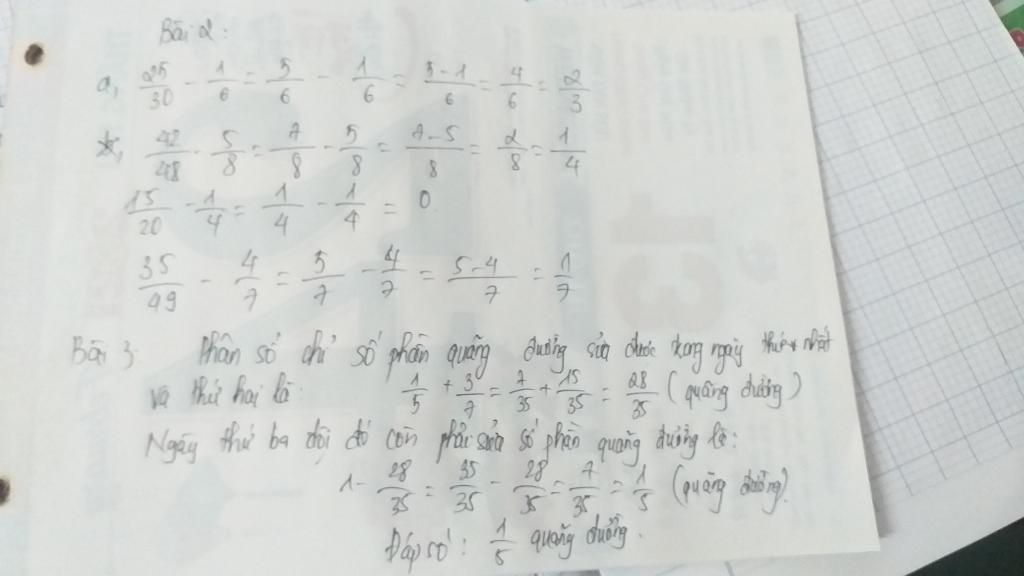 Bài 2:
a, 25/30 - 1/6 = 5/6 - 1/6 = 5-1/6 = 4/6 = 2/3
42/48 - 5/8 = 7/8 - 5/8 = 7-5/8 = 2/8 = 1/4
15/20 - 1/4 = 1/4 - 1/4 = 0
35/49 - 4/7 = 5/7 - 4/7 = 5-4/7 = 1/7
Bài 3: Phân số chỉ số phần quãng đường sửa được trong ngày thứ nhất
và thứ hai là: 1/5 + 3/7 = 7/35 + 15/35 = 28/35 (quãng đường)
Ngày thứ ba đội đó còn phải sửa số phần quãng đường là:
1 - 28/35 = 35/35 - 28/35 = 7/35 = 1/5 (quãng đường).
Đáp số: 1/5 quãng đường.